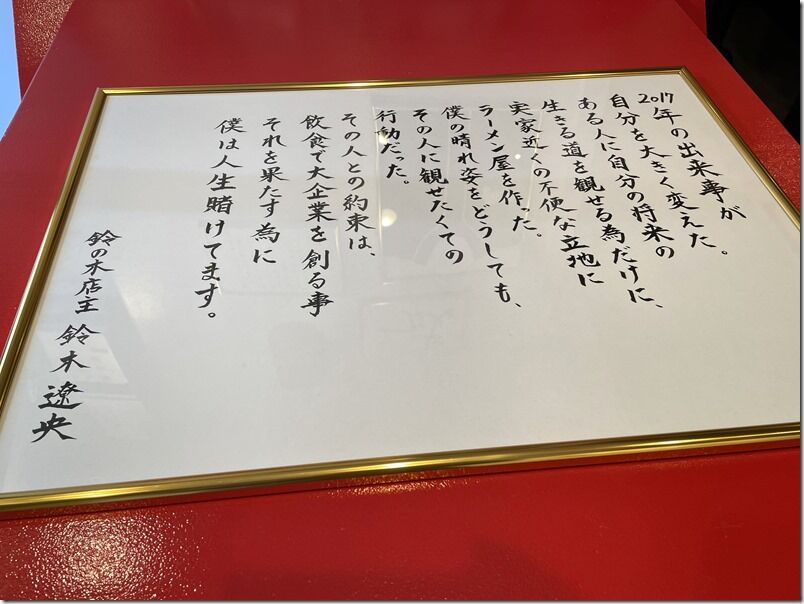 2017年の出来事が
自分を大きく変えた。
ある人に自分の将来の
生きる道を観せる為だけに、
実家近くの不便な立地に
ラーメン屋を作った。
僕の晴れ姿をどうしても、
その人に観せたくての
行動だった。
その人との約束は、
飲食で大企業を創る事
それを果たす為に
僕は人生賭けてます。
鈴の木店主 鈴木遼央